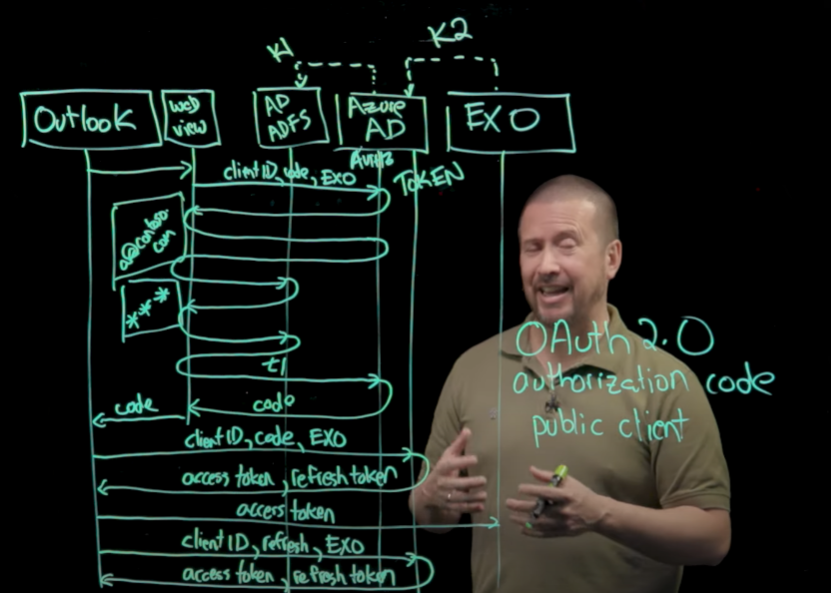 K1
K2
Outlook
web
view
AD
ADFS
Azure
AD
EXO
Authz
TOKEN
clientID, code, EXO
a@contoso.
com
***
t1
code
code
clientID, code, EXO
access token, refresh token
access token
clientID, refresh, EXO
access token, refresh token
OAuth 2.0
authorization code
public client